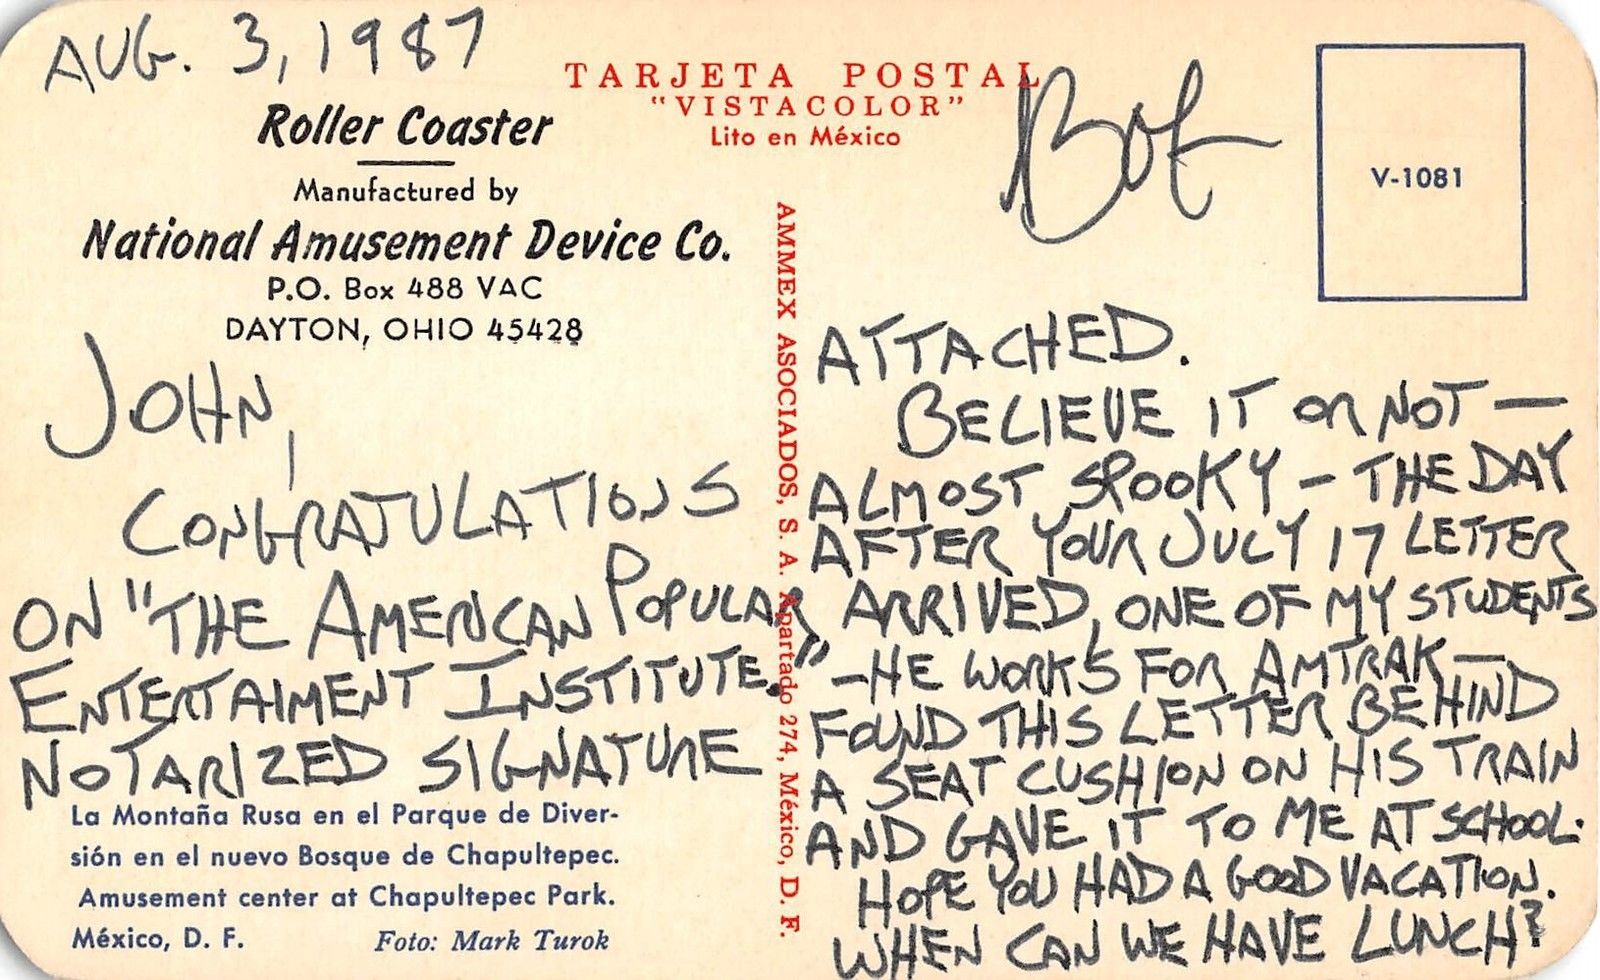 AUG. 3, 1987
Roller Coaster
Manufactured by
National Amusement Device Co.
P.O. Box 488 VAC
DAYTON, OHIO 45428
JOHN,
CONGRATULATIONS
ON "THE AMERICAN POPULAR
ENTERTAIMENT INSTITUTE."
NOTARIZED SIGNATURE
La Montaña Rusa en el Parque de Diver-
sión en el nuevo Bosque de Chapultepec.
Amusement center at Chapultepec Park.
México, D. F. Foto: Mark Turok
TARJETA POSTAL
"VISTACOLOR"
Lito en México
AMMEX ASOCIADOS, S. A. Apartado 274, México, D. F.
Bob
V-1081
ATTACHED.
BELIEVE IT OR NOT —
ALMOST SPOOKY - THE DAY
AFTER YOUR JULY 17 LETTER
ARRIVED, ONE OF MY STUDENTS
-HE WORKS FOR AMTRAK—
FOUND THIS LETTER BEHIND
A SEAT CUSHION ON HIS TRAIN
AND GAVE IT TO ME AT SCHOOL.
HOPE YOU HAD A GOOD VACATION.
WHEN CAN WE HAVE LUNCH?